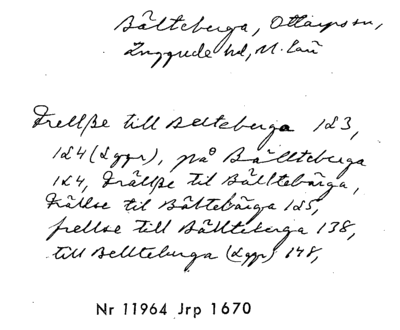 Bälteberga, Ottarps sn,
Luggude hd, M. län
Frellße till Belteberga 123,
124 (2 ggr), på Bällteberga
124, Frällße til Bälltebärga,
Frällse til Bältebärga 125,
frellse till Bällteberga 138,
till Bellteberga (2 ggr) 148,
Nr 11964 Jrp 1670